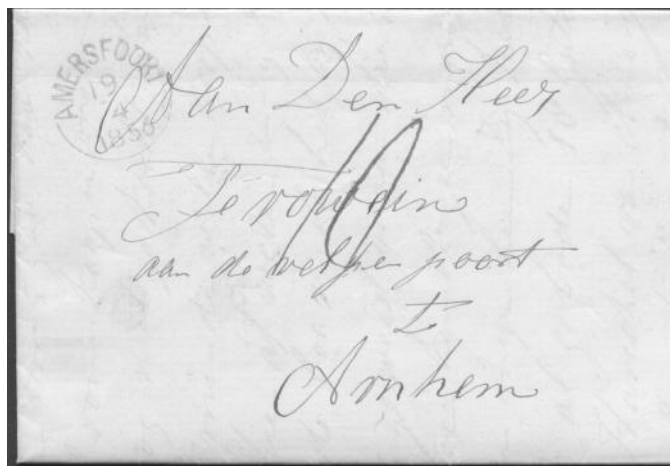 AMERSFOORT
19
4
1856
Aan Den Heer
10
aan de velper poort
te
Arnhem